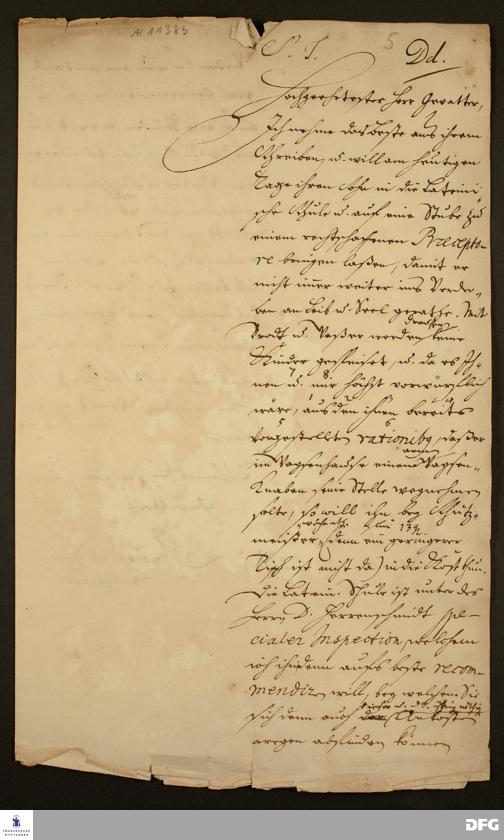 S. T.
5
Dd.
Hochgeehrtester Herr Gevatter,
Ich nehme das beste aus ihrem
Schreiben, u. will am heutigen
Tage ihren Sohn in die Lateini-
sche Schule u. auf eine Stube zu
einem rechtschaffenen Præcepto-
re bringen laßen, damit er
nicht immer weiter ins Verder-
ben an Leib u. Seel gerathe. Mit
Brodt u. Waßer werden keine
draußen
Kinder gespeiset, u. da es Ih-
7 8
nen u. mir höchst verwürflich
1 2
wäre, aus den ihnen bereits
5 6
vorgestellten rationibus, daß er
im Waysenhause einem Waysen-
armen
Knaben seine Stelle wegnehmen
solte, so will ihn bey
meister (denn ein geringerer
Tisch ist nicht da) in die Kost thun.
Die Latein. Schule ist unter des
Herrn D. Herrenschmidt spe-
cialer Inspection, welchem
ich ihn denn aufs beste recom-
mendiren will, bey welchem Sie
sich denn auch der Unkosten
wegen abfinden können.
FRANCKESCHE
STIFTUNGEN
DFG